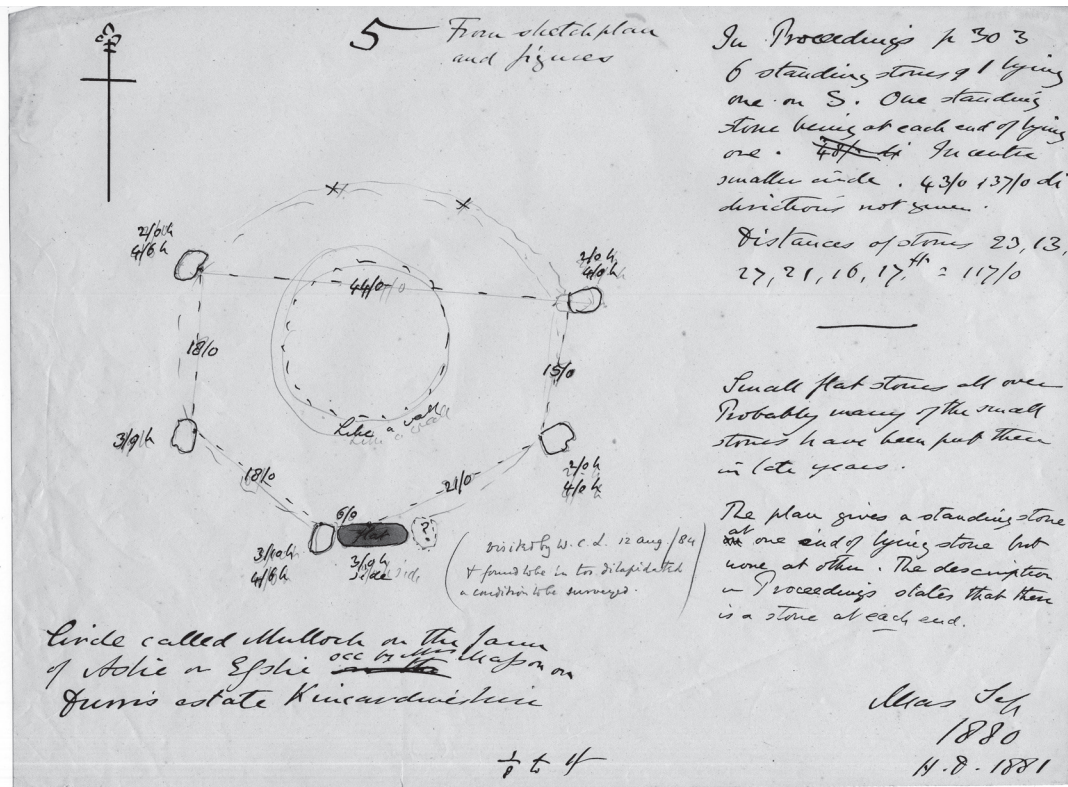 5
From sketchplan
and figures
In Proceedings p 303
6 standing stones & 1 lying
one on S. One standing
stone being at each end of lying
one. In centre
smaller circle. 43/0 & 37/0 di
directions not given.
Distances of stones 23, 13,
27, 21, 16, 17 ft = 117/0
Small flat stones all over
Probably many of the small
stones have been put there
in late years.
The plan gives a standing stone
at one end of lying stone but
none at other. The description
in Proceedings states that there
is a stone at each end.
4/6 h
2/0 h
4/0 h
44/0
18/0
15/0
Like a wall
3/9 h
2/0 h
4/0 h
18/0
21/0
6/0
flat
?
3/10 h
4/6 h
3/9 h
side
(Visited by W.C.L. 12 Aug/84
& found to be in too dilapidated
a condition to be surveyed.)
Circle called Mulloch on the farm
of Ashie or Esslie occ by Mrs Masson on
Durris estate Kincardineshire
1/8 to 1f
Meas Sep
1880
H.D. 1881